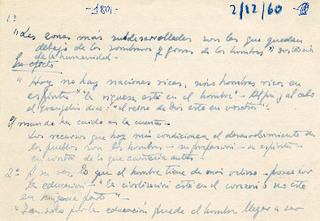 -180V- 2/12/60
1º
"Las zonas más subdesarrolladas son las que quedan
debajo de los sombreros y gorros de los hombres"
de la humanidad.
En efecto,
"Hoy no hay naciones ricas, sino hombres ricos en
espíritu" "la riqueza está en el hombre". Al fin y al cabo
el evangelio dice: "el reino de Dios está en vosotros".
El mundo ha caído en la cuenta
Los recursos que hoy más condicionan el desenvolvimiento de
los pueblos son los hombres - su preparación - su espíritu
en contra de lo que
2º A su vez lo que el hombre tiene de más valioso
la educación - "La civilización está en el corazón o no está
en ninguna parte"
"Tan solo por la educación puede el hombre llegar a ser